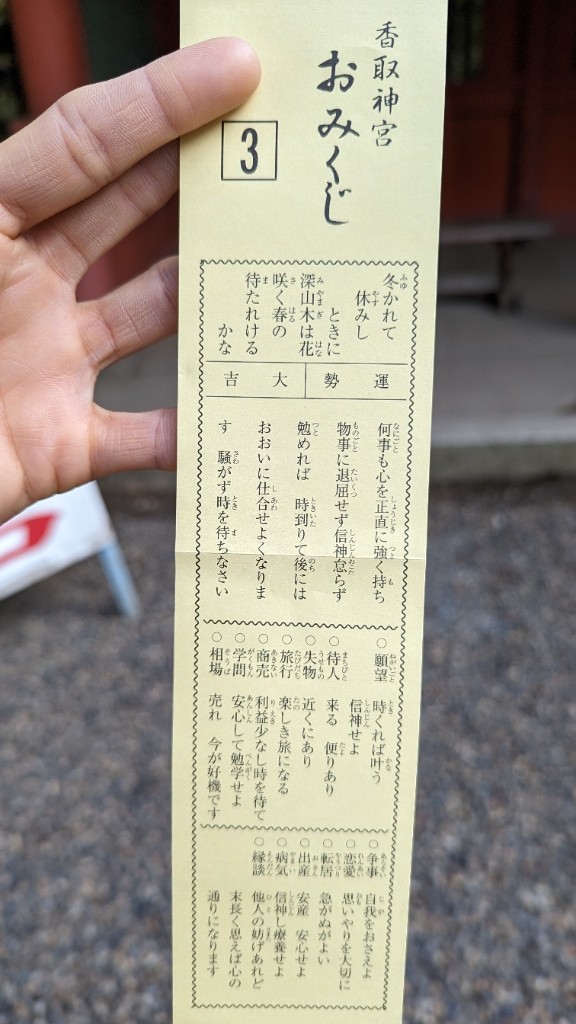 香取神宮
おみくじ
3
冬かれて
休みし
ときに
深山木は花
咲く春の
待たれける
かな
運勢
大吉
何事も心を正直に強く持ち
物事に退屈せず信神怠らず
勉めれば　時到りて後には
おおいに仕合せよくなりま
す　騒がず時を待ちなさい
○願望　時くれば叶う
信神せよ
○待人　来る　便りあり
○失物　近くにあり
○旅行　楽しき旅になる
○商売　利益少なし時を待て
○学問　安心して勉学せよ
○相場　売れ　今が好機です
○争事　自我をおさえよ
○恋愛　思いやりを大切に
○転居　急がぬがよい
○出産　安産　安心せよ
○病気　信神し療養せよ
○縁談　他人の妨げあれど
末長く思えば心の
通りになります